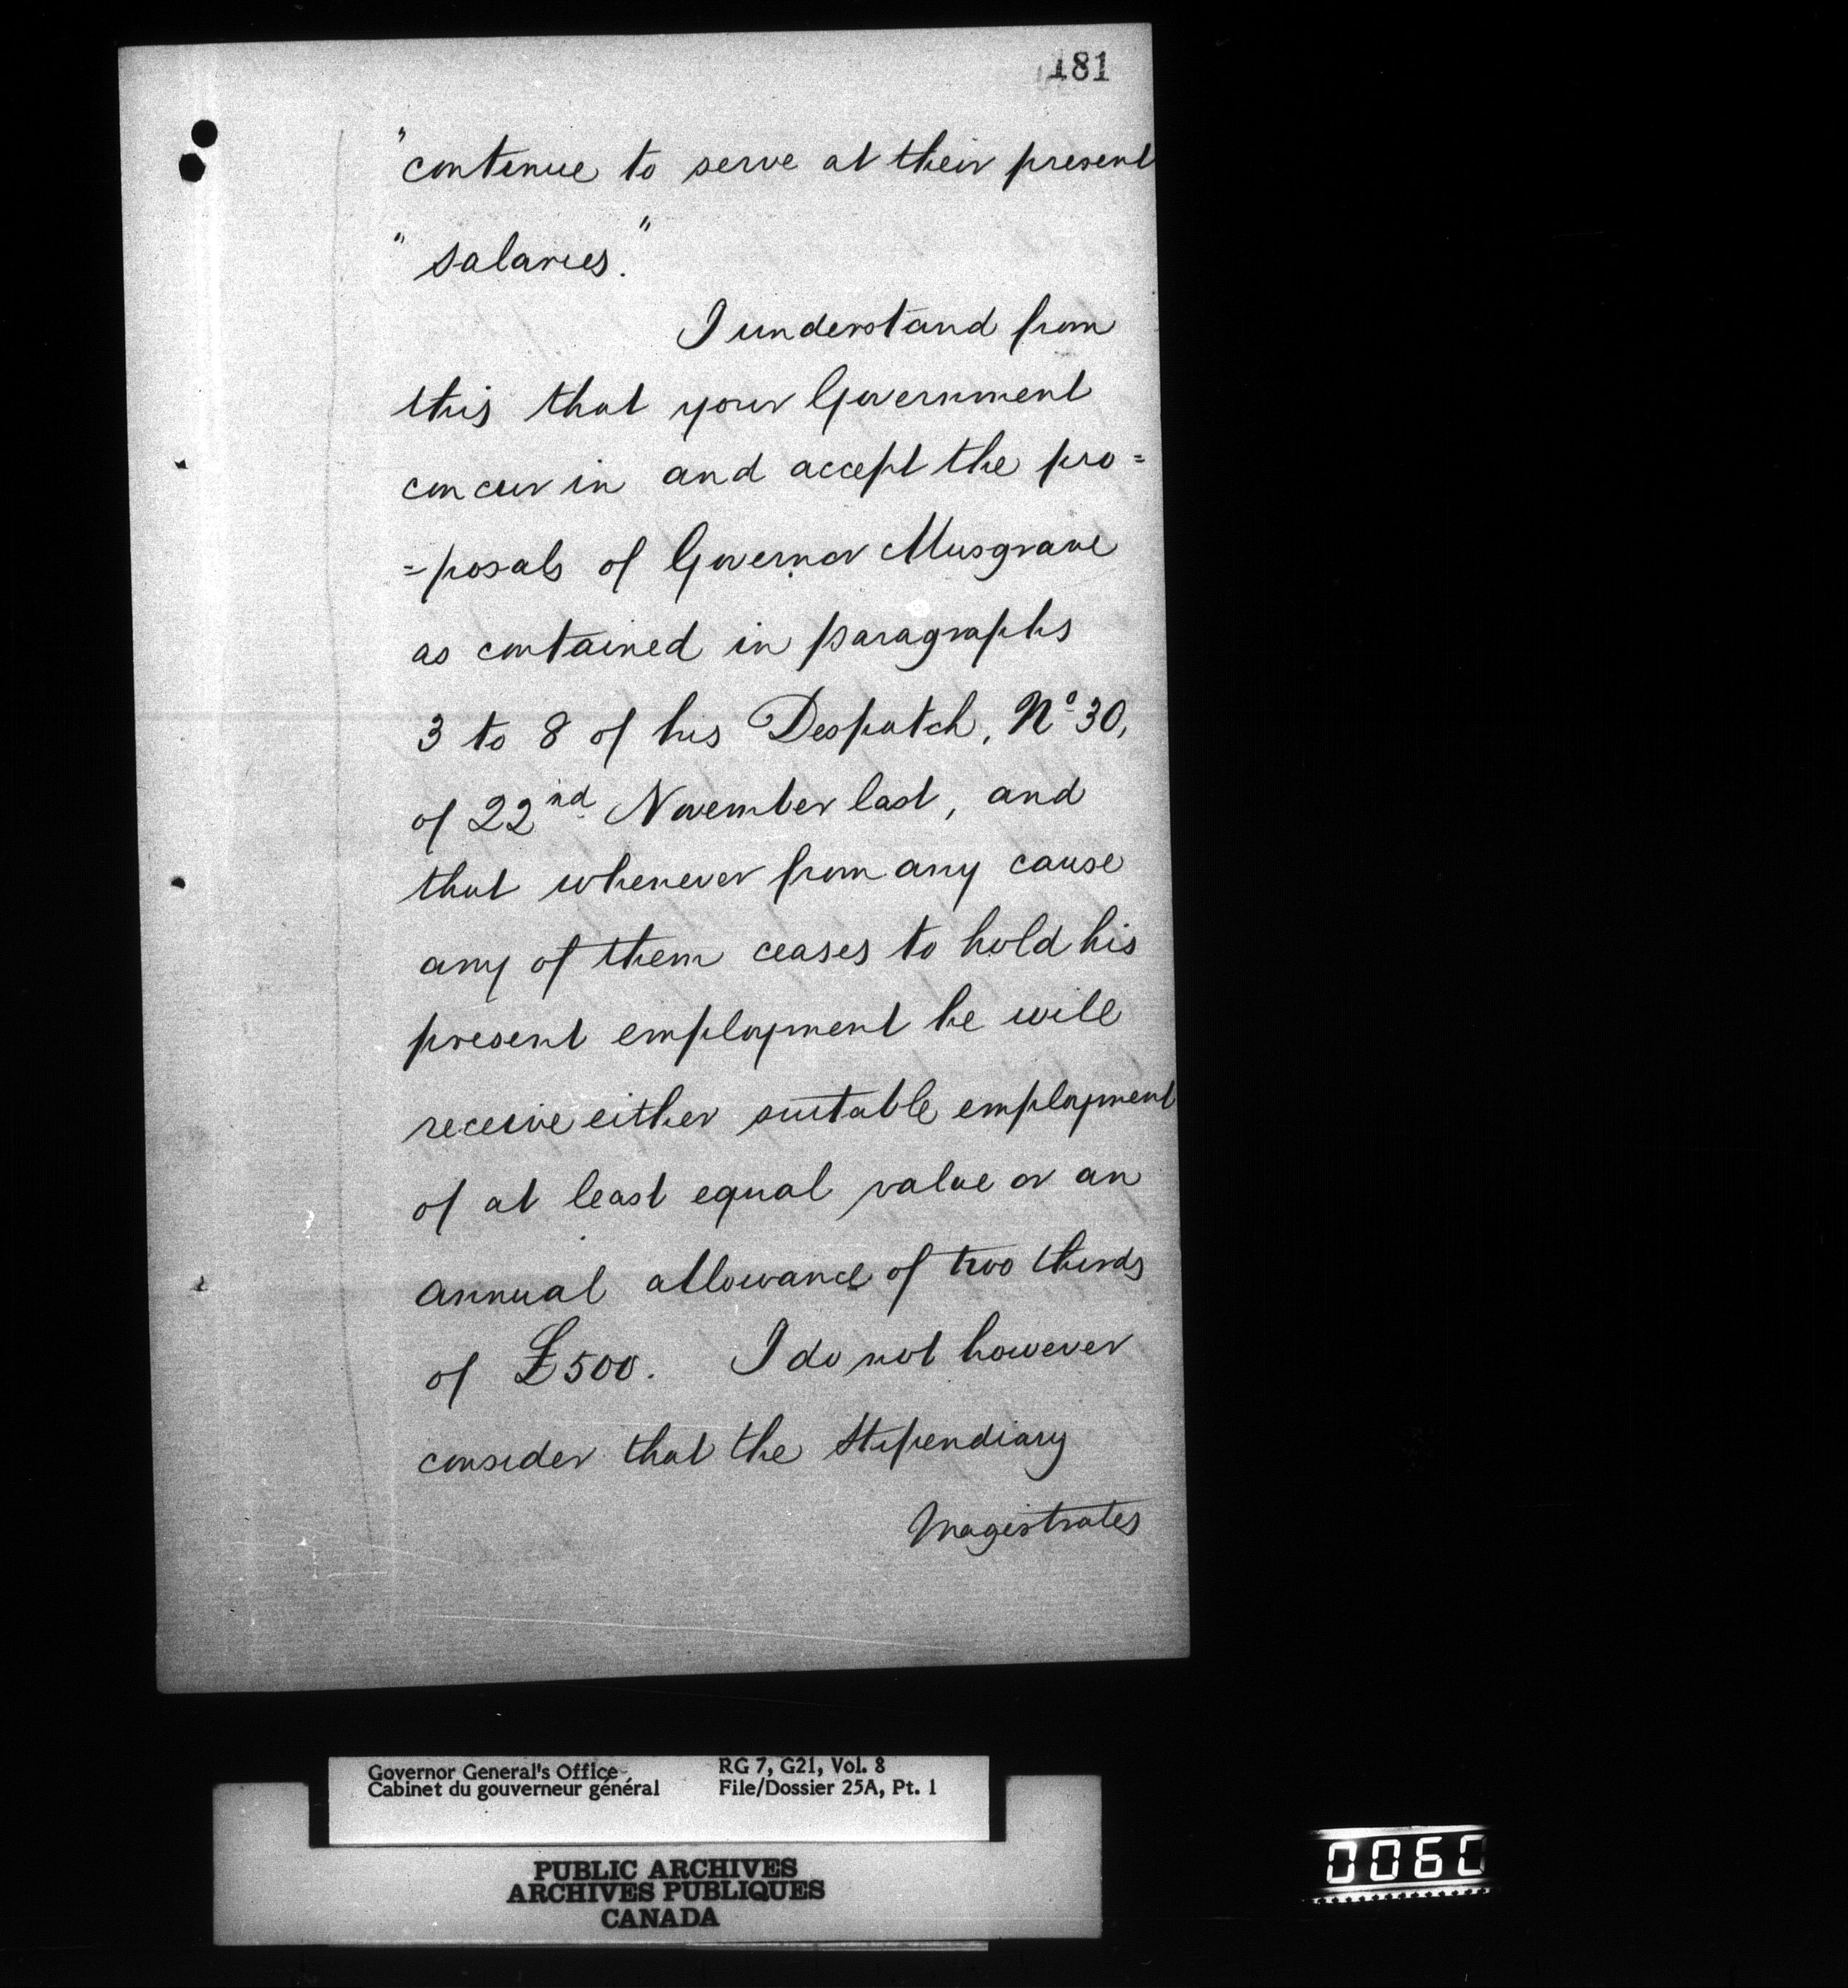 181
"continue to serve at their present
"salaries."
I understand from
this that your Government
concur in and accept the pro=
=posals of Governor Musgrave
as contained in paragraphs
3 to 8 of his Despatch, Nº 30,
of 22nd. November last, and
that whenever from any cause
any of them ceases to hold his
present employment he will
receive either suitable employment
of at least equal value or an
annual allowance of two thirds
of £500. I do not however
consider that the Stipendiary
Magistrates
Governor General's Office RG 7, G21, Vol. 8
Cabinet du gouverneur général File/Dossier 25A, Pt. 1
PUBLIC ARCHIVES
ARCHIVES PUBLIQUES
CANADA
0060